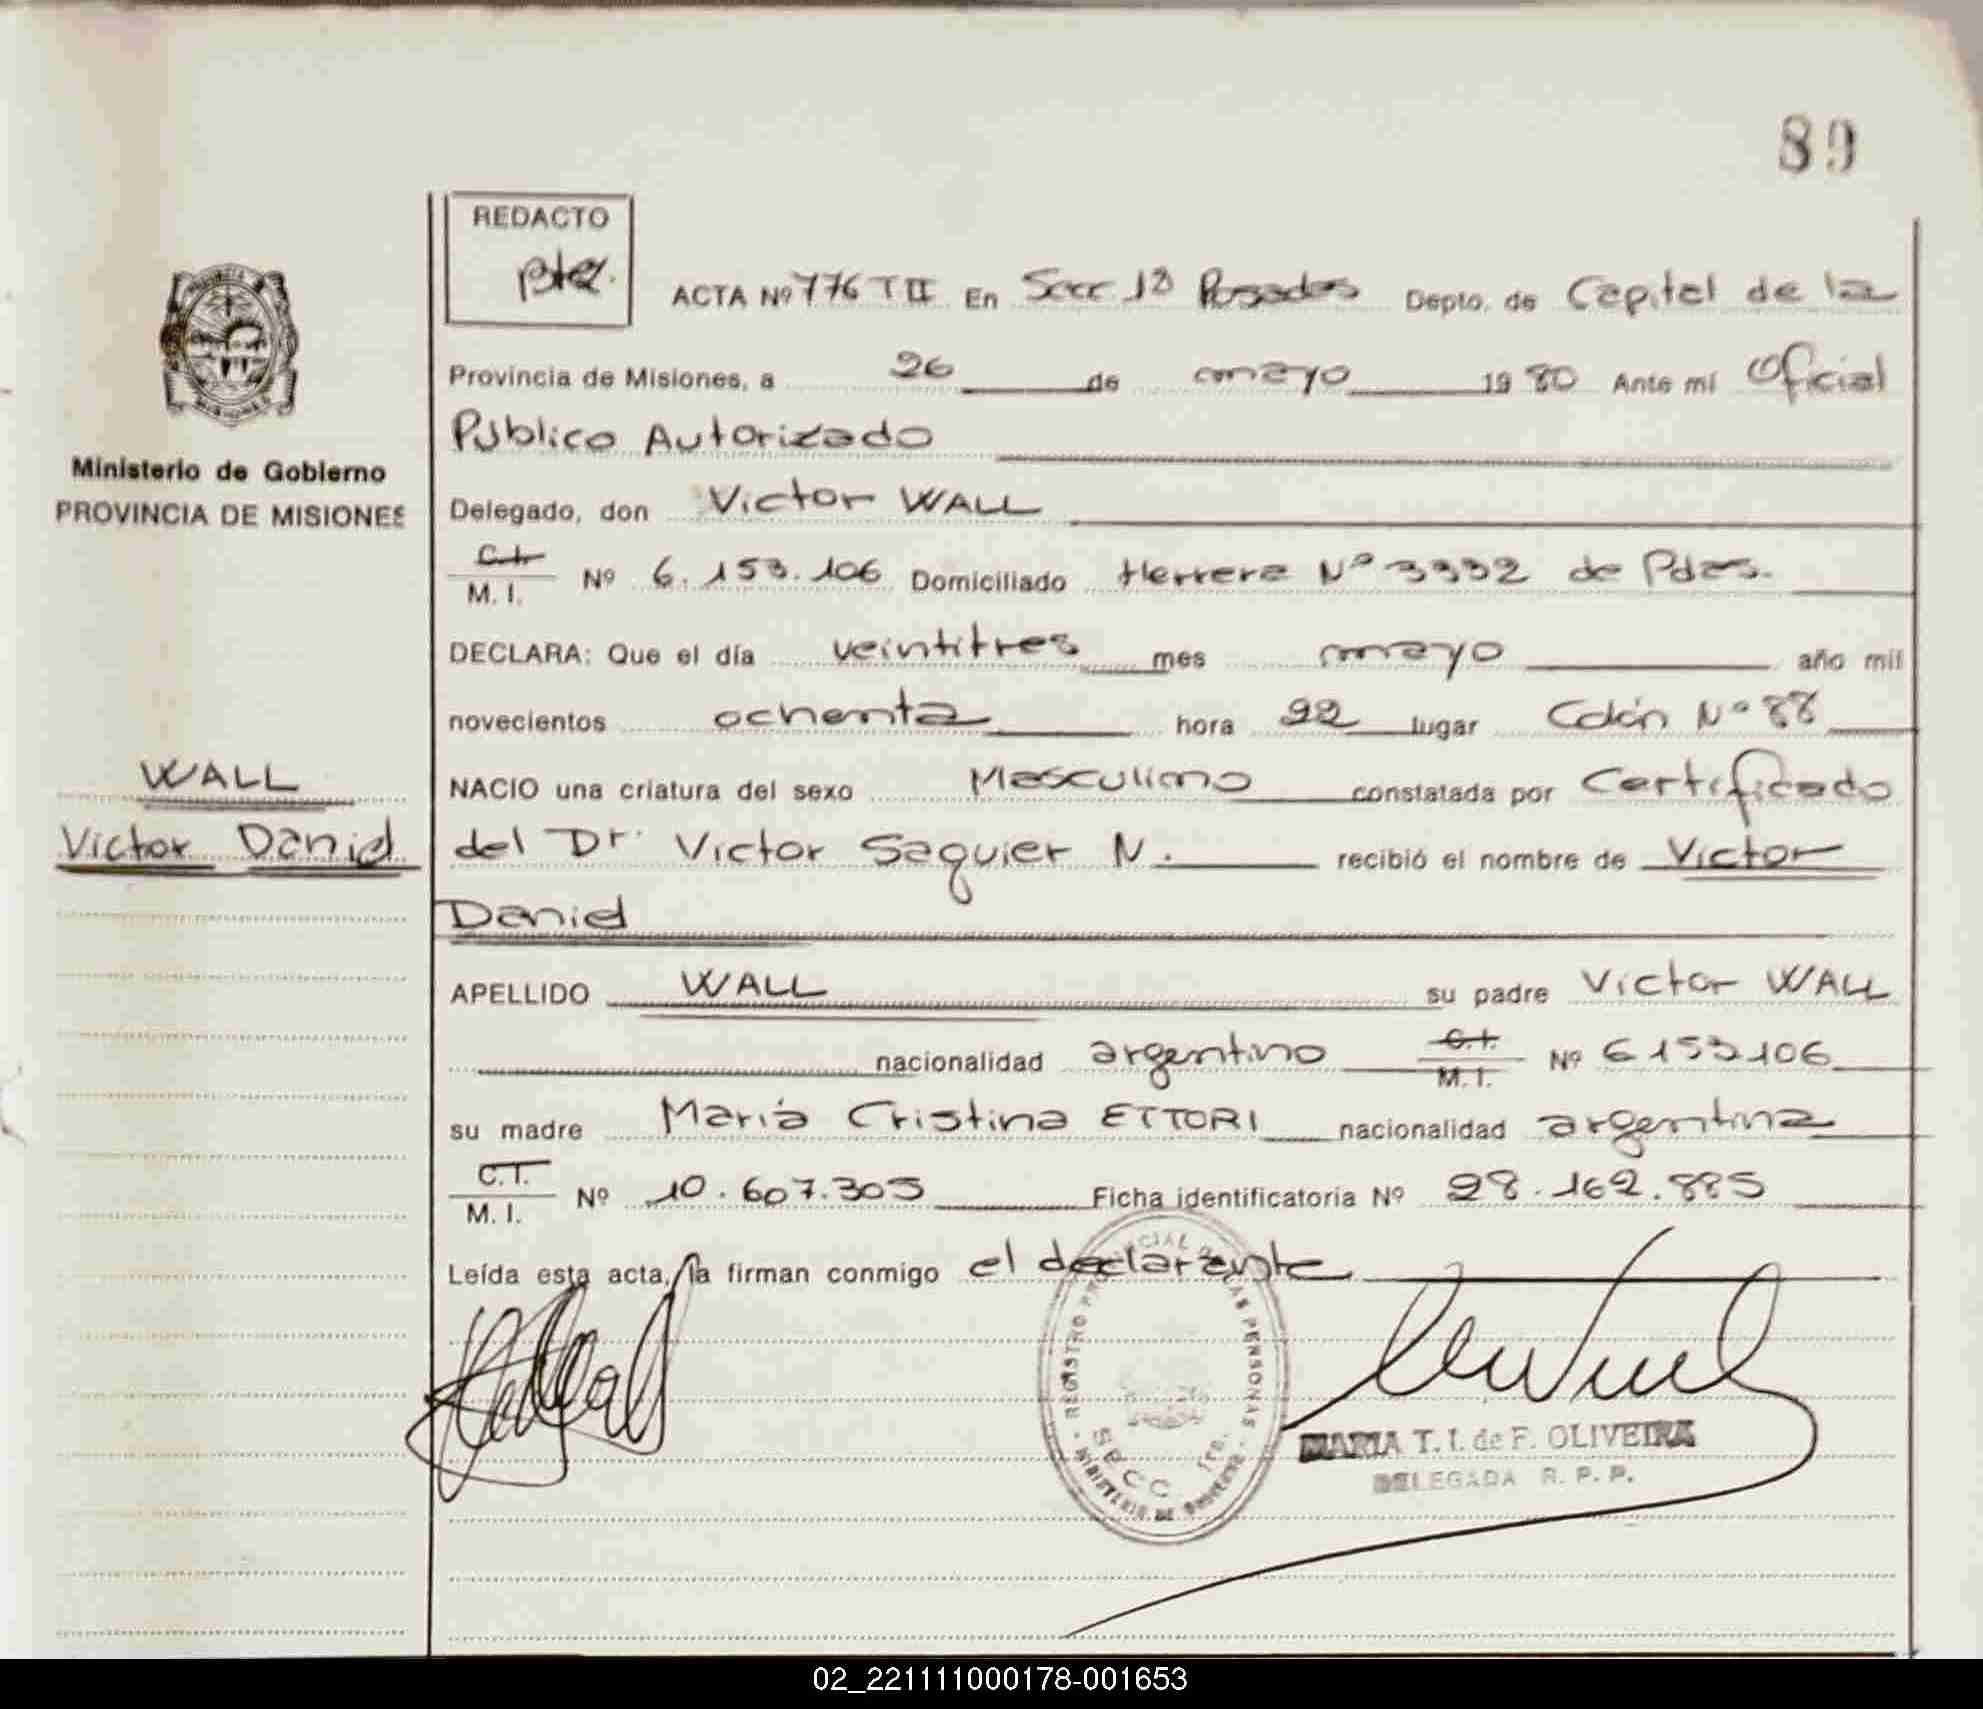 89
REDACTO
ACTA Nº 776 T II En Secc 1ª Posadas Depto. de Capital de la
Provincia de Misiones, a 26 de mayo 1980 Ante mí Oficial
Público Autorizado
Ministerio de Gobierno
PROVINCIA DE MISIONES
Delegado, don Victor WALL
C.I. M. I. Nº 6.153.106 Domiciliado Herrera Nº 3332 de Pdas.
DECLARA: Que el día veintitres mes mayo año mil
novecientos ochenta hora 22 lugar Colón Nº 88
WALL
NACIO una criatura del sexo Masculino constatada por Certificado
Victor Daniel
del Dr. Victor Saguier N. recibió el nombre de Victor
Daniel
APELLIDO WALL su padre Victor WALL
nacionalidad argentino C.I. M. I. Nº 6153106
su madre María Cristina ETTORI nacionalidad argentina
C.I. M. I. Nº 10.607.305 Ficha identificatoria Nº 28.162.885
Leída esta acta, la firman conmigo el declarante
REGISTRO PROVINCIAL DE LAS PERSONAS
SECC. 1ra.
MINISTERIO DE GOBIERNO
MARIA T. I. de F. OLIVEIRA
DELEGADA R. P. P.
02_221111000178-001653